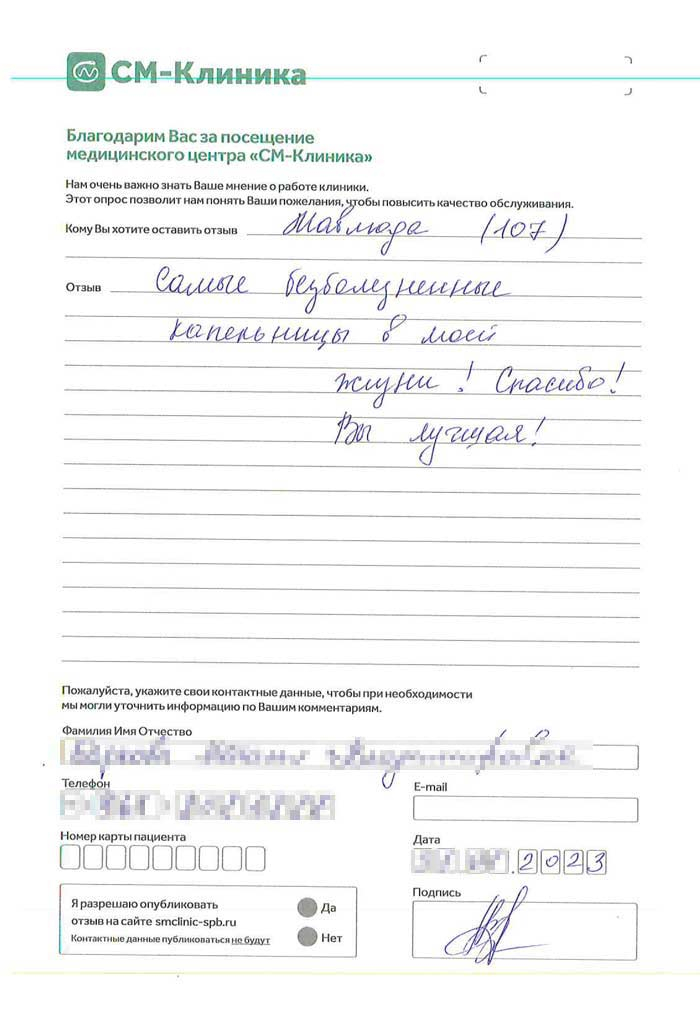 СМ-Клиника
Благодарим Вас за посещение
медицинского центра «СМ-Клиника»
Нам очень важно знать Ваше мнение о работе клиники.
Этот опрос позволит нам понять Ваши пожелания, чтобы повысить качество обслуживания.
Кому Вы хотите оставить отзыв Мавлюда (107)
Отзыв Самые безболезненные
капельницы в моей
жизни! Спасибо!
Вы лучшая!
Пожалуйста, укажите свои контактные данные, чтобы при необходимости
мы могли уточнить информацию по Вашим комментариям.
Фамилия Имя Отчество
Телефон
E-mail
Номер карты пациента
Дата
.2023
Я разрешаю опубликовать
отзыв на сайте smclinic-spb.ru
Контактные данные публиковаться не будут
Да
Нет
Подпись